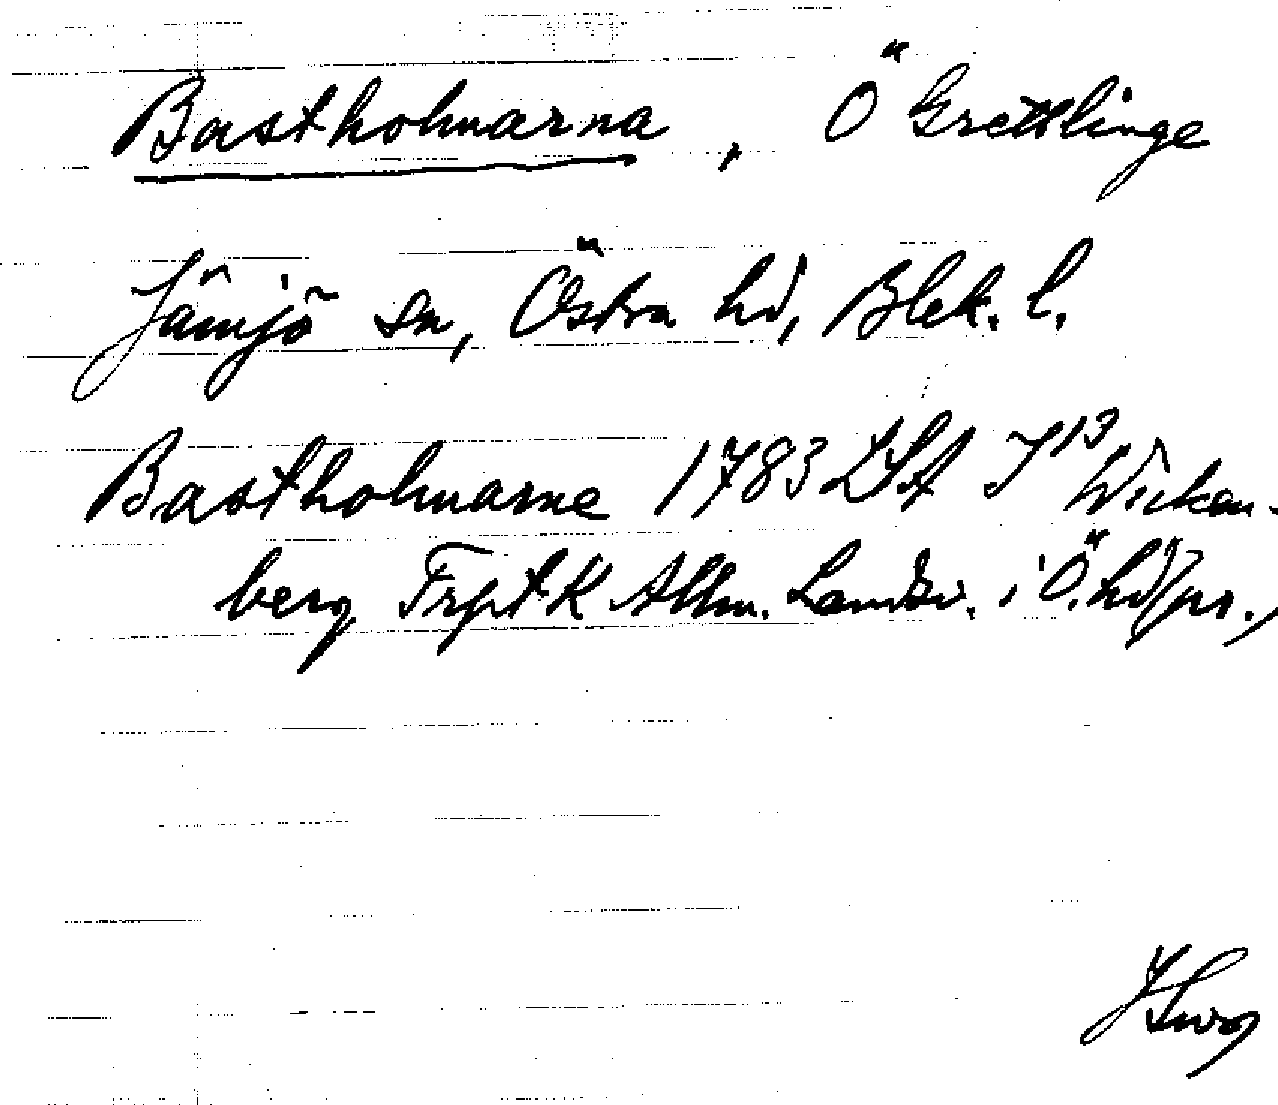 Bastholmarna, Ö Grettlinge
Jämjö sn, Östra hd, Blek. l.
Bastholmarne 1783 LSA I 13 Wicken-
berg Frpt K Allm. Landsv. i Ö. hd/pr.,